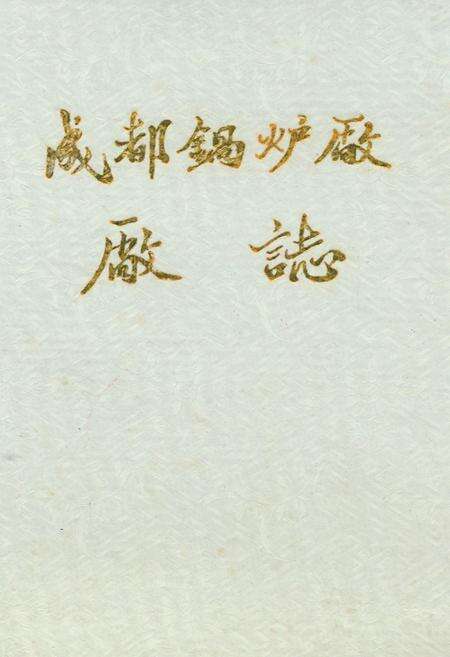 成都鍋炉廠
廠誌